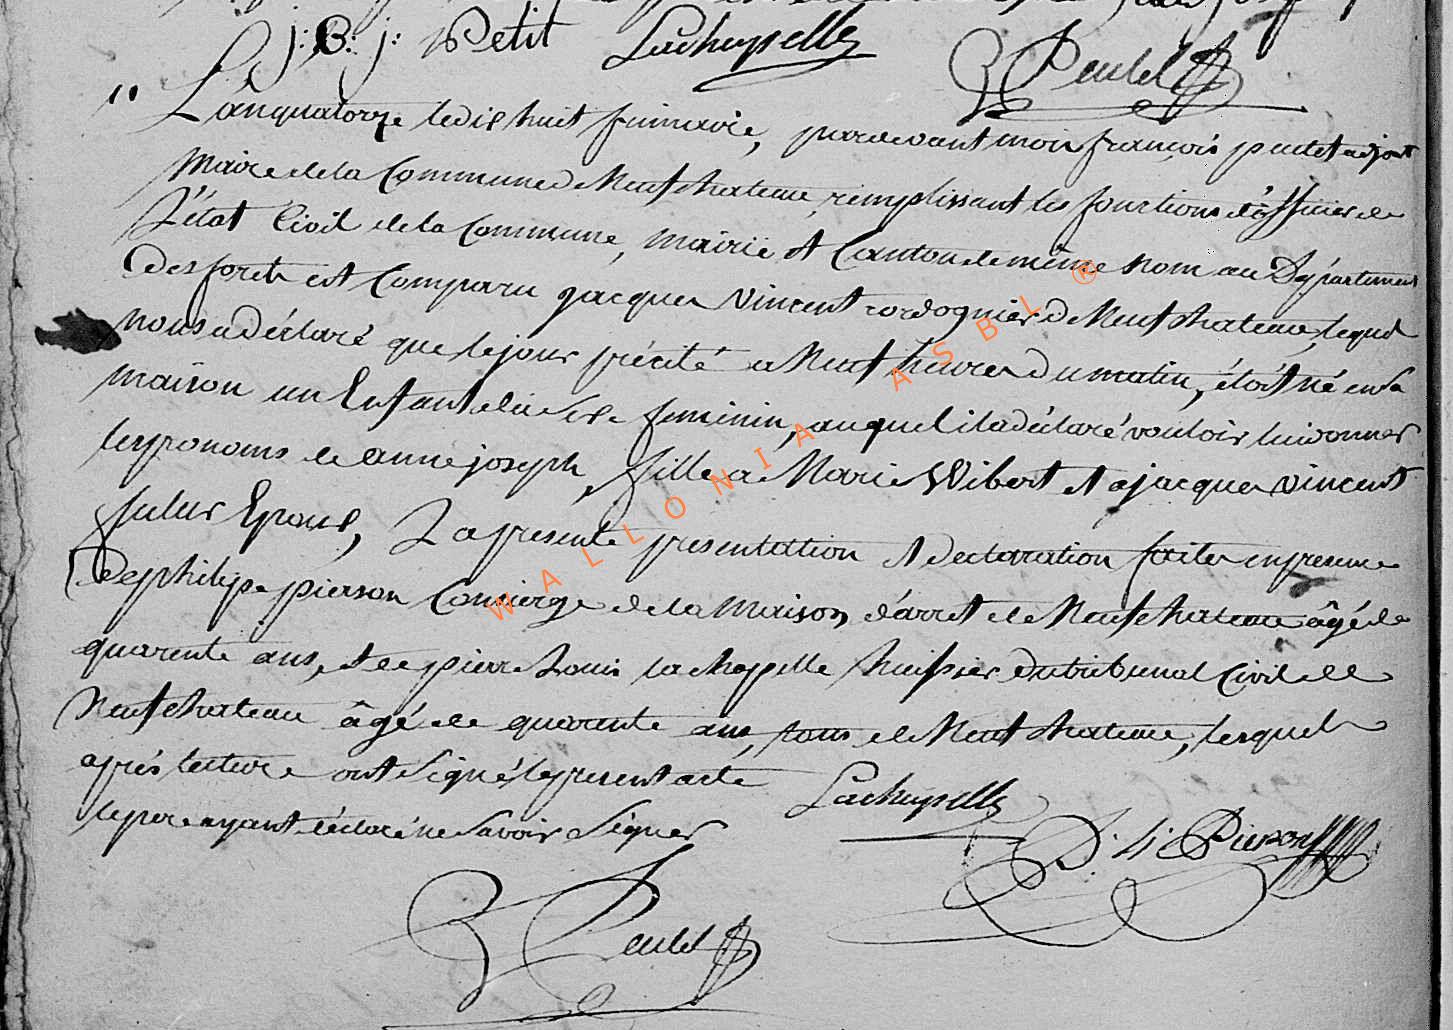 j: B: j: Petit Lachapelle Peulet
" L'an quatorze le dix huit frimaire, pardevant moi françois peulet adjoint
maire de la Commune de Neufchateau, remplissant les fonctions d'officier de
L'état Civil de la Commune, mairie et Canton de même nom au Département
des forets est Comparu jacques vincent cordognier de Neufchateau, lequel
nous a déclaré que le jour précité a Neuf heures du matin, étoit né en sa
maison un Enfant du sexe feminin, auquel il a déclaré vouloir lui donner
les prenoms de anne joseph, fille a Marie Wibert et a jacques vincent
Epoux, La presente presentation et declaration faites en presence
de philipe pierson Concierge de la maison d'arret de Neufchateau âgé de
quarente ans, et de pierre Louis la chappelle huissier du tribunal Civil de
Neufchateau âgé de quarante ans, tous de Neufchateau, lesquels
après lecture ont signé le present acte
le pere ayant déclaré ne savoir signer
Lachapelle
Pierson
Peulet
WALLONIA ASBL ®